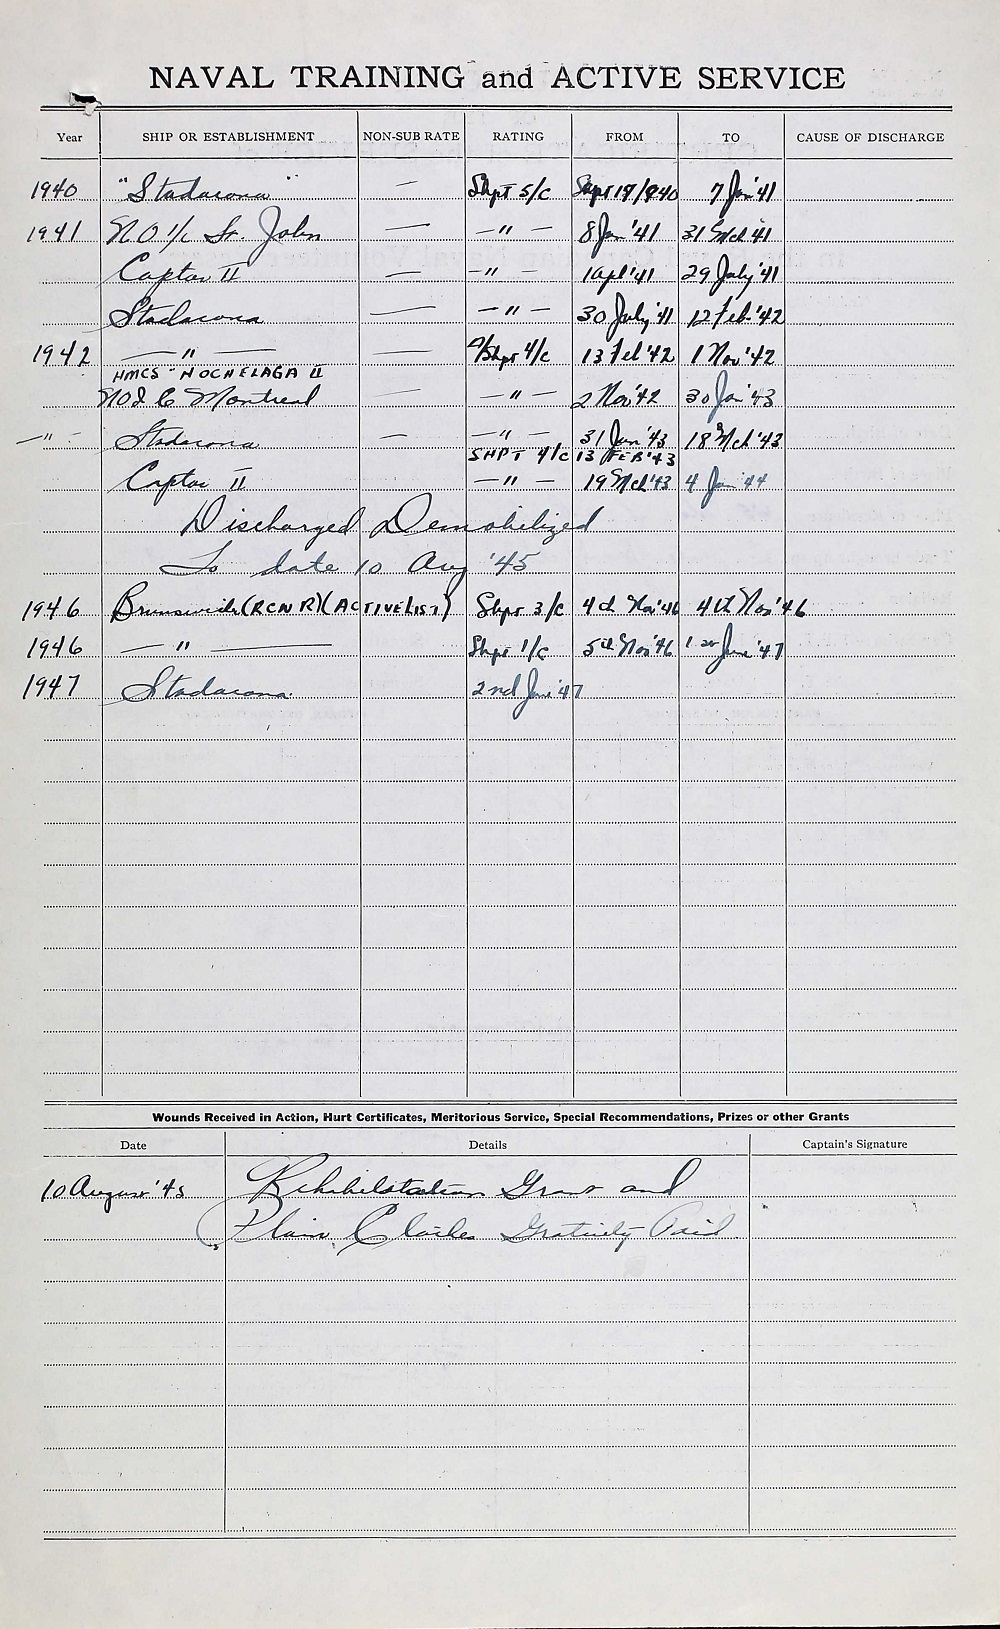 NAVAL TRAINING and ACTIVE SERVICE
Year SHIP OR ESTABLISHMENT NON-SUB RATE RATING FROM TO CAUSE OF DISCHARGE
1940 "Stadacona" — Shpt 5/c Sept 19/1940 7 Jan '41
1941 N.O. I/c St. John — — " — 8 Jan '41 31 Mch '41
Captor II — — " — 1 Apl '41 29 July '41
Stadacona — — " — 30 July '41 12 Feb. '42
1942 — " — — A/Shpt 4/c 13 Feb '42 1 Nov '42
HMCS "HOCHELAGA II
Montreal — — " — 2 Nov '42 30 Jan '43
— " — Stadacona — — " — 31 Jan '43 18 Mch '43
SHPT 4/c 13 FEB '43
Captor II — " — 19 Mch '43 4 Jan '44
Discharged Demobilized
To date 10 Aug '45
1946 Brunswick (RCNR) (ACTIVE LIST) Shpt 3/c 4th Nov '46 4th Nov '46
1946 — " — Shpt 1/c 5th Nov '46 1st June '47
1947 Stadacona 2nd June '47
Wounds Received in Action, Hurt Certificates, Meritorious Service, Special Recommendations, Prizes or other Grants
Date Details Captain's Signature
10 August '45 Rehabilitation Grant and
Plain Clothes Gratuity Paid.